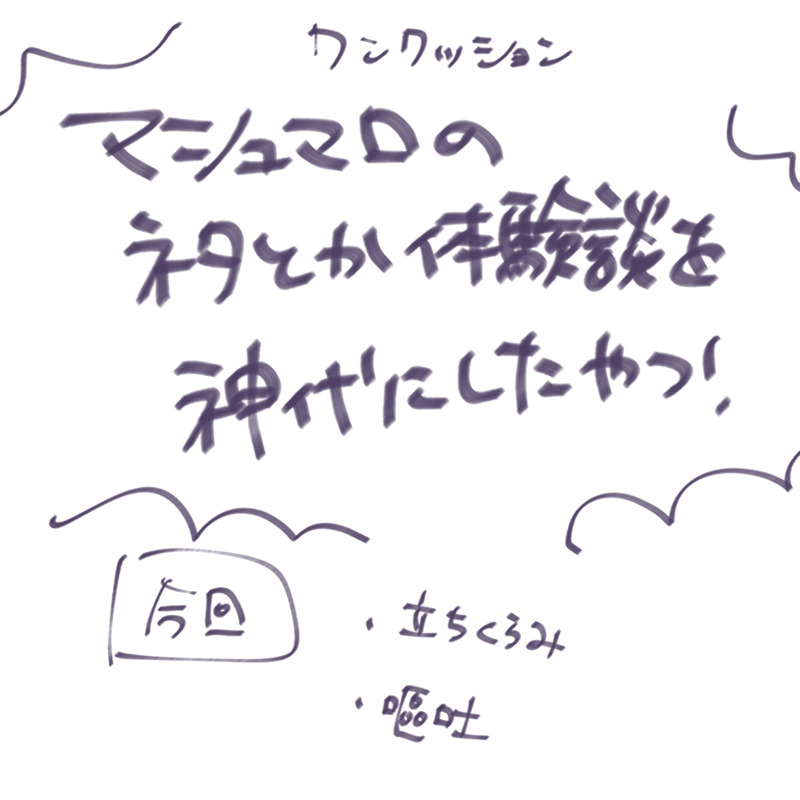 ワンクッション
マシュマロの
ネタとか体験談を
神代にしたやつ!
今回
・立ちくらみ
・嘔吐